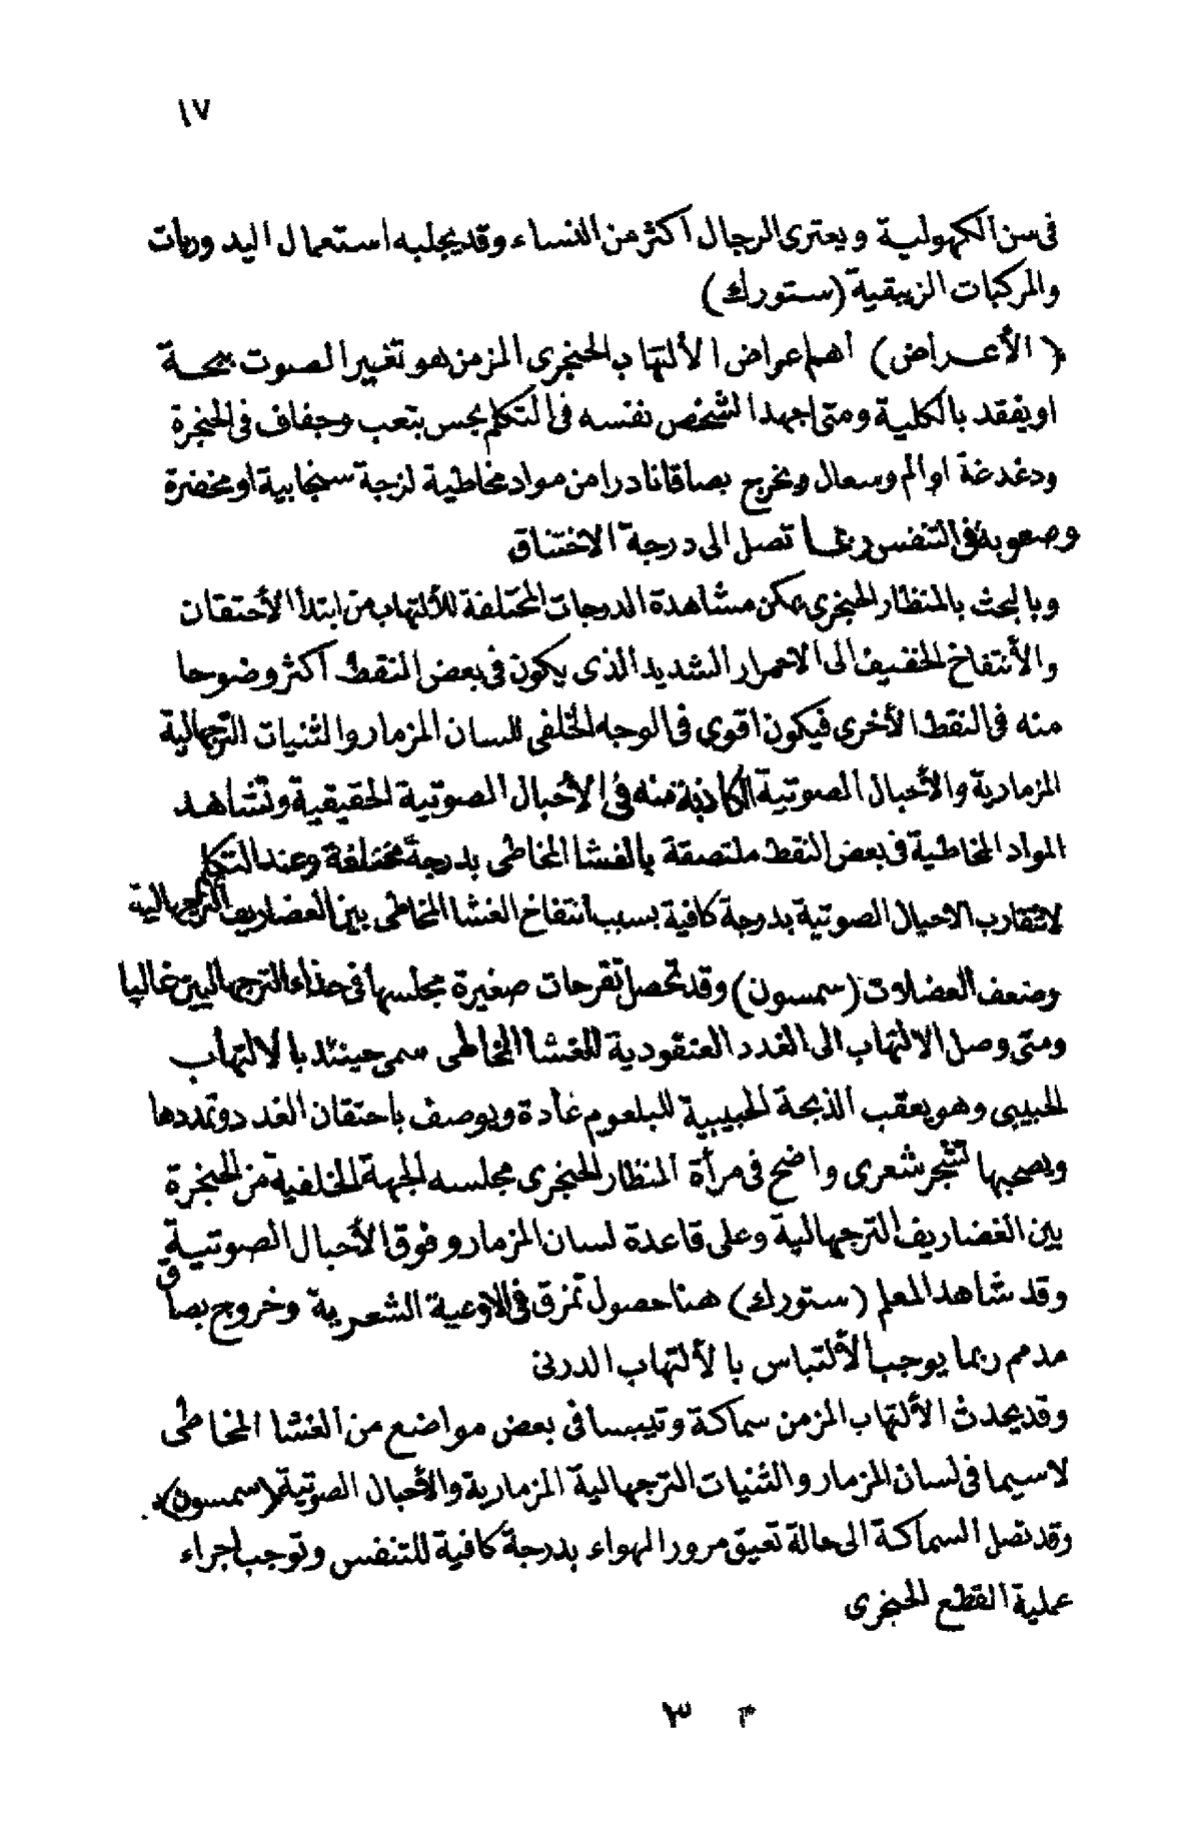 ١٧
فى سن الكهولية ويعترى الرجال أكثر من النساء وقد يجلبه استعمال اليدوريات
والمركبات الزيبقية (ستورك)
(الأعراض) أهم اعراض الألتهاب الحنجرى المزمن هو تغيير الصوت ببحة
او يفقد بالكلية ومتى اجهد الشخص نفسه فى التكلم يحس بتعب وجفاف فى الحنجرة
ودغدغة او الم وسعال ويخرج بصاقا نادرا من مواد مخاطية لزجة سنجابية او مخضرة
وصعوبة فى التنفس ربما تصل الى درجة الاختناق
وبالبحث بالمنظار الحنجرى يمكن مشاهدة الدرجات المختلفة للألتهاب من ابتدأ الأحتقان
والأنتفاخ الخفيف الى الاحمرار الشديد الذى يكون فى بعض النقط أكثر وضوحا
منه فى النقط الأخرى فيكون اقوى فى الوجه الخلفى للسان المزمار والثنيات الترجهالية
المزمارية والأحبال الصوتية الكاذبة منه فى الأحبال الصوتية الحقيقية وتشاهد
المواد المخاطية فى بعض النقط ملتصقة بالغشا المخاطى بدرجة مختلفة وعند التكلم
لاتتقارب الاحبال الصوتية بدرجة كافية بسبب انتفاخ الغشا المخاطى بين الغضاريف الترجهالية
وضعف العضلات (سمسون) وقد تحصل تقرحات صغيرة مجلسها فى حذاء الترجهاليين غالبا
ومتى وصل الالتهاب الى الغدد العنقودية للغشا المخاطى سمى حينئذ بالالتهاب
الحبيبى وهو يعقب الذبحة الحبيبية للبلعوم عادة ويوصف باحتقان الغدد وتمددها
ويصحبها تشجر شعرى واضح فى مرأة المنظار الحنجرى مجلسه الجهة الخلفية من الحنجرة
بين الغضاريف الترجهالية وعلى قاعدة لسان المزمار وفوق الأحبال الصوتية
وقد شاهد المعلم (ستورك) هنا حصول تمزق فى الاوعية الشعرية وخروج بصاق
مدمم ربما يوجب الألتباس بالألتهاب الدرنى
وقد يحدث الألتهاب المزمن سماكة وتيبسا فى بعض مواضع من الغشا المخاطى
لاسيما فى لسان المزمار والثنيات الترجهالية المزمارية والأحبال الصوتية (سمسون)
وقد تصل السماكة الى حالة تعيق مرور الهواء بدرجة كافية للتنفس وتوجب اجراء
عملية القطع الحنجرى
٣ م